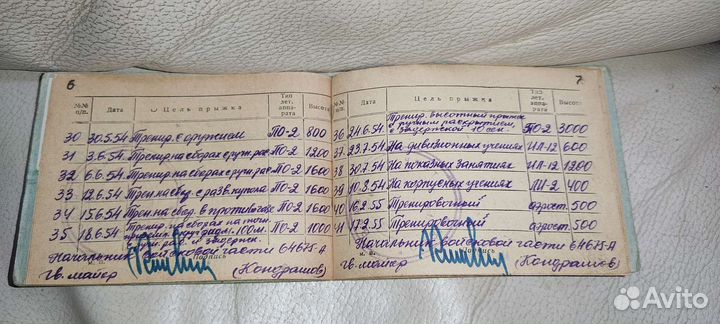 6
№№ п/п. Дата Цель прыжка Тип лет. аппарата Высота
30 30.5.54 Тренир. с оружием ПО-2 800
31 3.6.54 Тренир. на сборах с руч. рас. ПО-2 1200
32 6.6.54 Тренир. на сборах с руч. рас. ПО-2 1600
33 12.6.54 Трен. на сбор. с разв. купола ПО-2 1600
34 15.6.54 Трен. на сбор. в противогазе ПО-2 1600
35 18.6.54 Тренир. на сборах на точн. 100м. ПО-2 1000
руч. рас. и задержк.
Начальник войсковой части 64675-А
Подпись
гв. майор (Кондрашов)
7
№№ п/п. Дата Цель прыжка Тип лет. аппарата Высота
36 24.6.54 Тренир. высотный прыжок с ручным раскрытием, с задержкой 10 сек. ПО-2 3000
37 23.7.54 На дивизионных учениях ИЛ-12 600
38 30.7.54 На показных занятиях ИЛ-12 1200
39 10.8.54 На корпусных учениях ЛИ-2 400
40 16.2.55 Тренировочный аэрост. 500
41 17.2.55 Тренировочный аэрост. 500
Начальник войсковой части 64675-А
Подпись
гв. майор (Кондрашов)
Avito